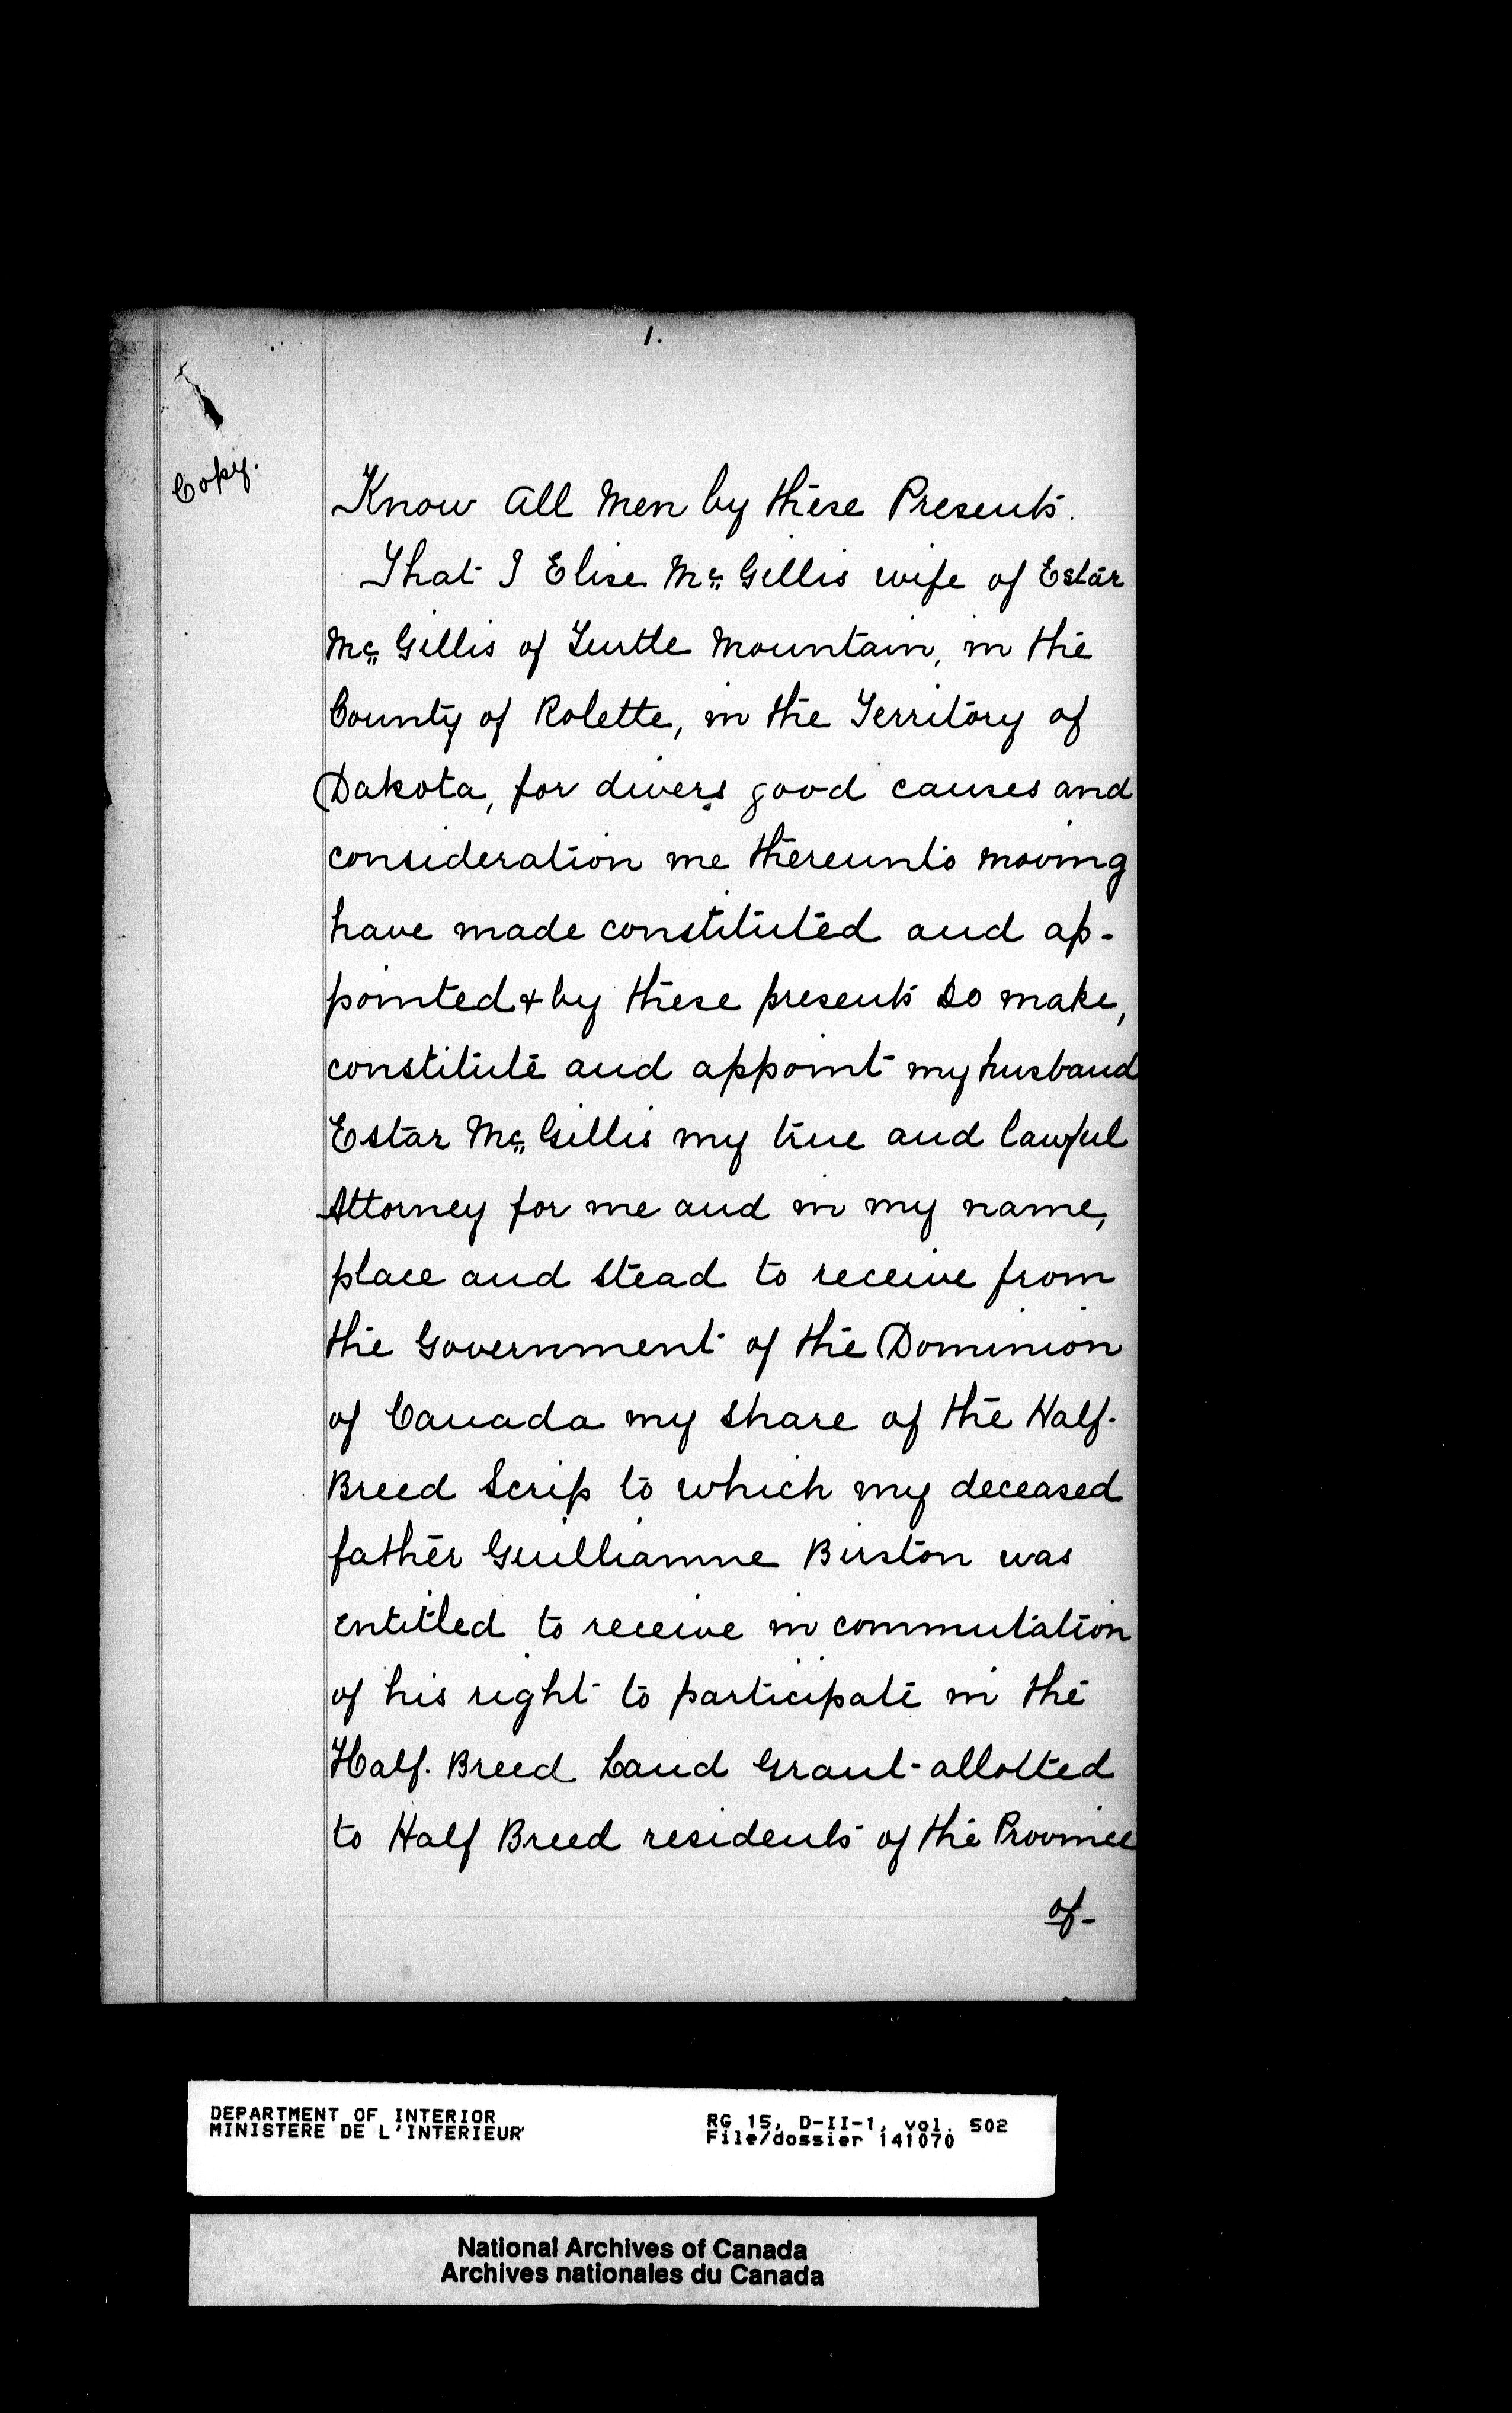 1.
Copy.
Know All Men by these Presents.
That I Elise Mc Gillis wife of Estar
Mc Gillis of Turtle Mountain, in the
County of Rolette, in the Territory of
Dakota, for divers good causes and
consideration me thereunto moving
have made constituted and ap-
pointed & by these presents do make,
constitute and appoint my husband
Estar Mc Gillis my true and lawful
Attorney for me and in my name,
place and stead to receive from
the Government of the Dominion
of Canada my share of the Half-
Breed Scrip to which my deceased
father Guilliamne Birston was
entitled to receive in commutation
of his right to participate in the
Half-Breed Land Grant allotted
to Half Breed residents of the Province
of-
DEPARTMENT OF INTERIOR
MINISTERE DE L'INTERIEUR
RG 15, D-II-1, vol. 502
File/dossier 141070
National Archives of Canada
Archives nationales du Canada